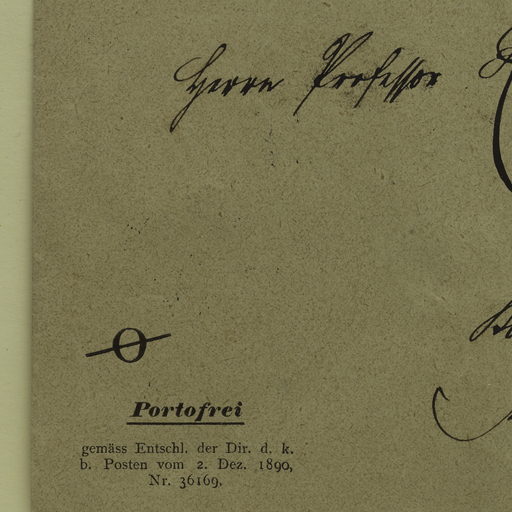 Herrn Professor
O
Portofrei
gemäss Entschl. der Dir. d. k.
b. Posten vom 2. Dez. 1890,
Nr. 36169.